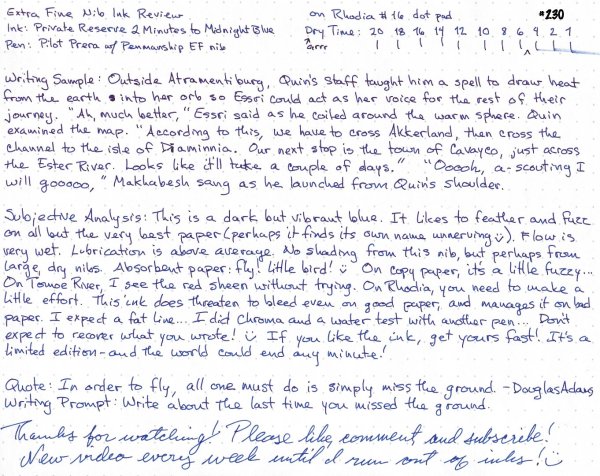 Extra Fine Nib Ink Review on Rhodia #16 dot pad #230
Ink: Private Reserve 2 Minutes to Midnight Blue Dry Time: 20 18 16 14 12 10 8 6 4 2 1
Pen: Pilot Prera w/ Penmanship EF nib Arrr
Writing Sample: Outside Atramentiburg, Quin's staff taught him a spell to draw heat
from the earth into her orb so Essri could act as her voice for the rest of their
journey. "Ah, much better," Essri said as he coiled around the warm sphere. Quin
examined the map. "According to this, we have to cross Akkerland, then cross the
channel to the isle of Diaminnia. Our next stop is the town of Cavayco, just across
the Ester River. Looks like it'll take a couple of days." "Ooooh, a-scouting I
will gooooo," Makhabesh sang as he launched from Quin's shoulder.
Subjective Analysis: This is a dark but vibrant blue. It likes to feather and fuzz
on all but the very best paper (perhaps it finds its own name unnerving ü). Flow is
very wet. Lubrication is above average. No shading from this nib, but perhaps from
large, dry nibs. Absorbent paper: fly! little bird! ü On copy paper, it's a little fuzzy...
On Tomoe River, I see the red sheen without trying. On Rhodia, you need to make a
little effort. This ink does threaten to bleed even on good paper, and manages it on bad
paper. I expect a fat line... I did Chroma and a water test with another pen... Don't
expect to recover what you wrote! ü If you like the ink, get yours fast! It's a
limited edition - and the world could end any minute!
Quote: In order to fly, all one must do is simply miss the ground. - Douglas Adams
Writing Prompt: Write about the last time you missed the ground.
Thanks for watching! Please like, comment and subscribe!
New video every week until I run out of inks! ü